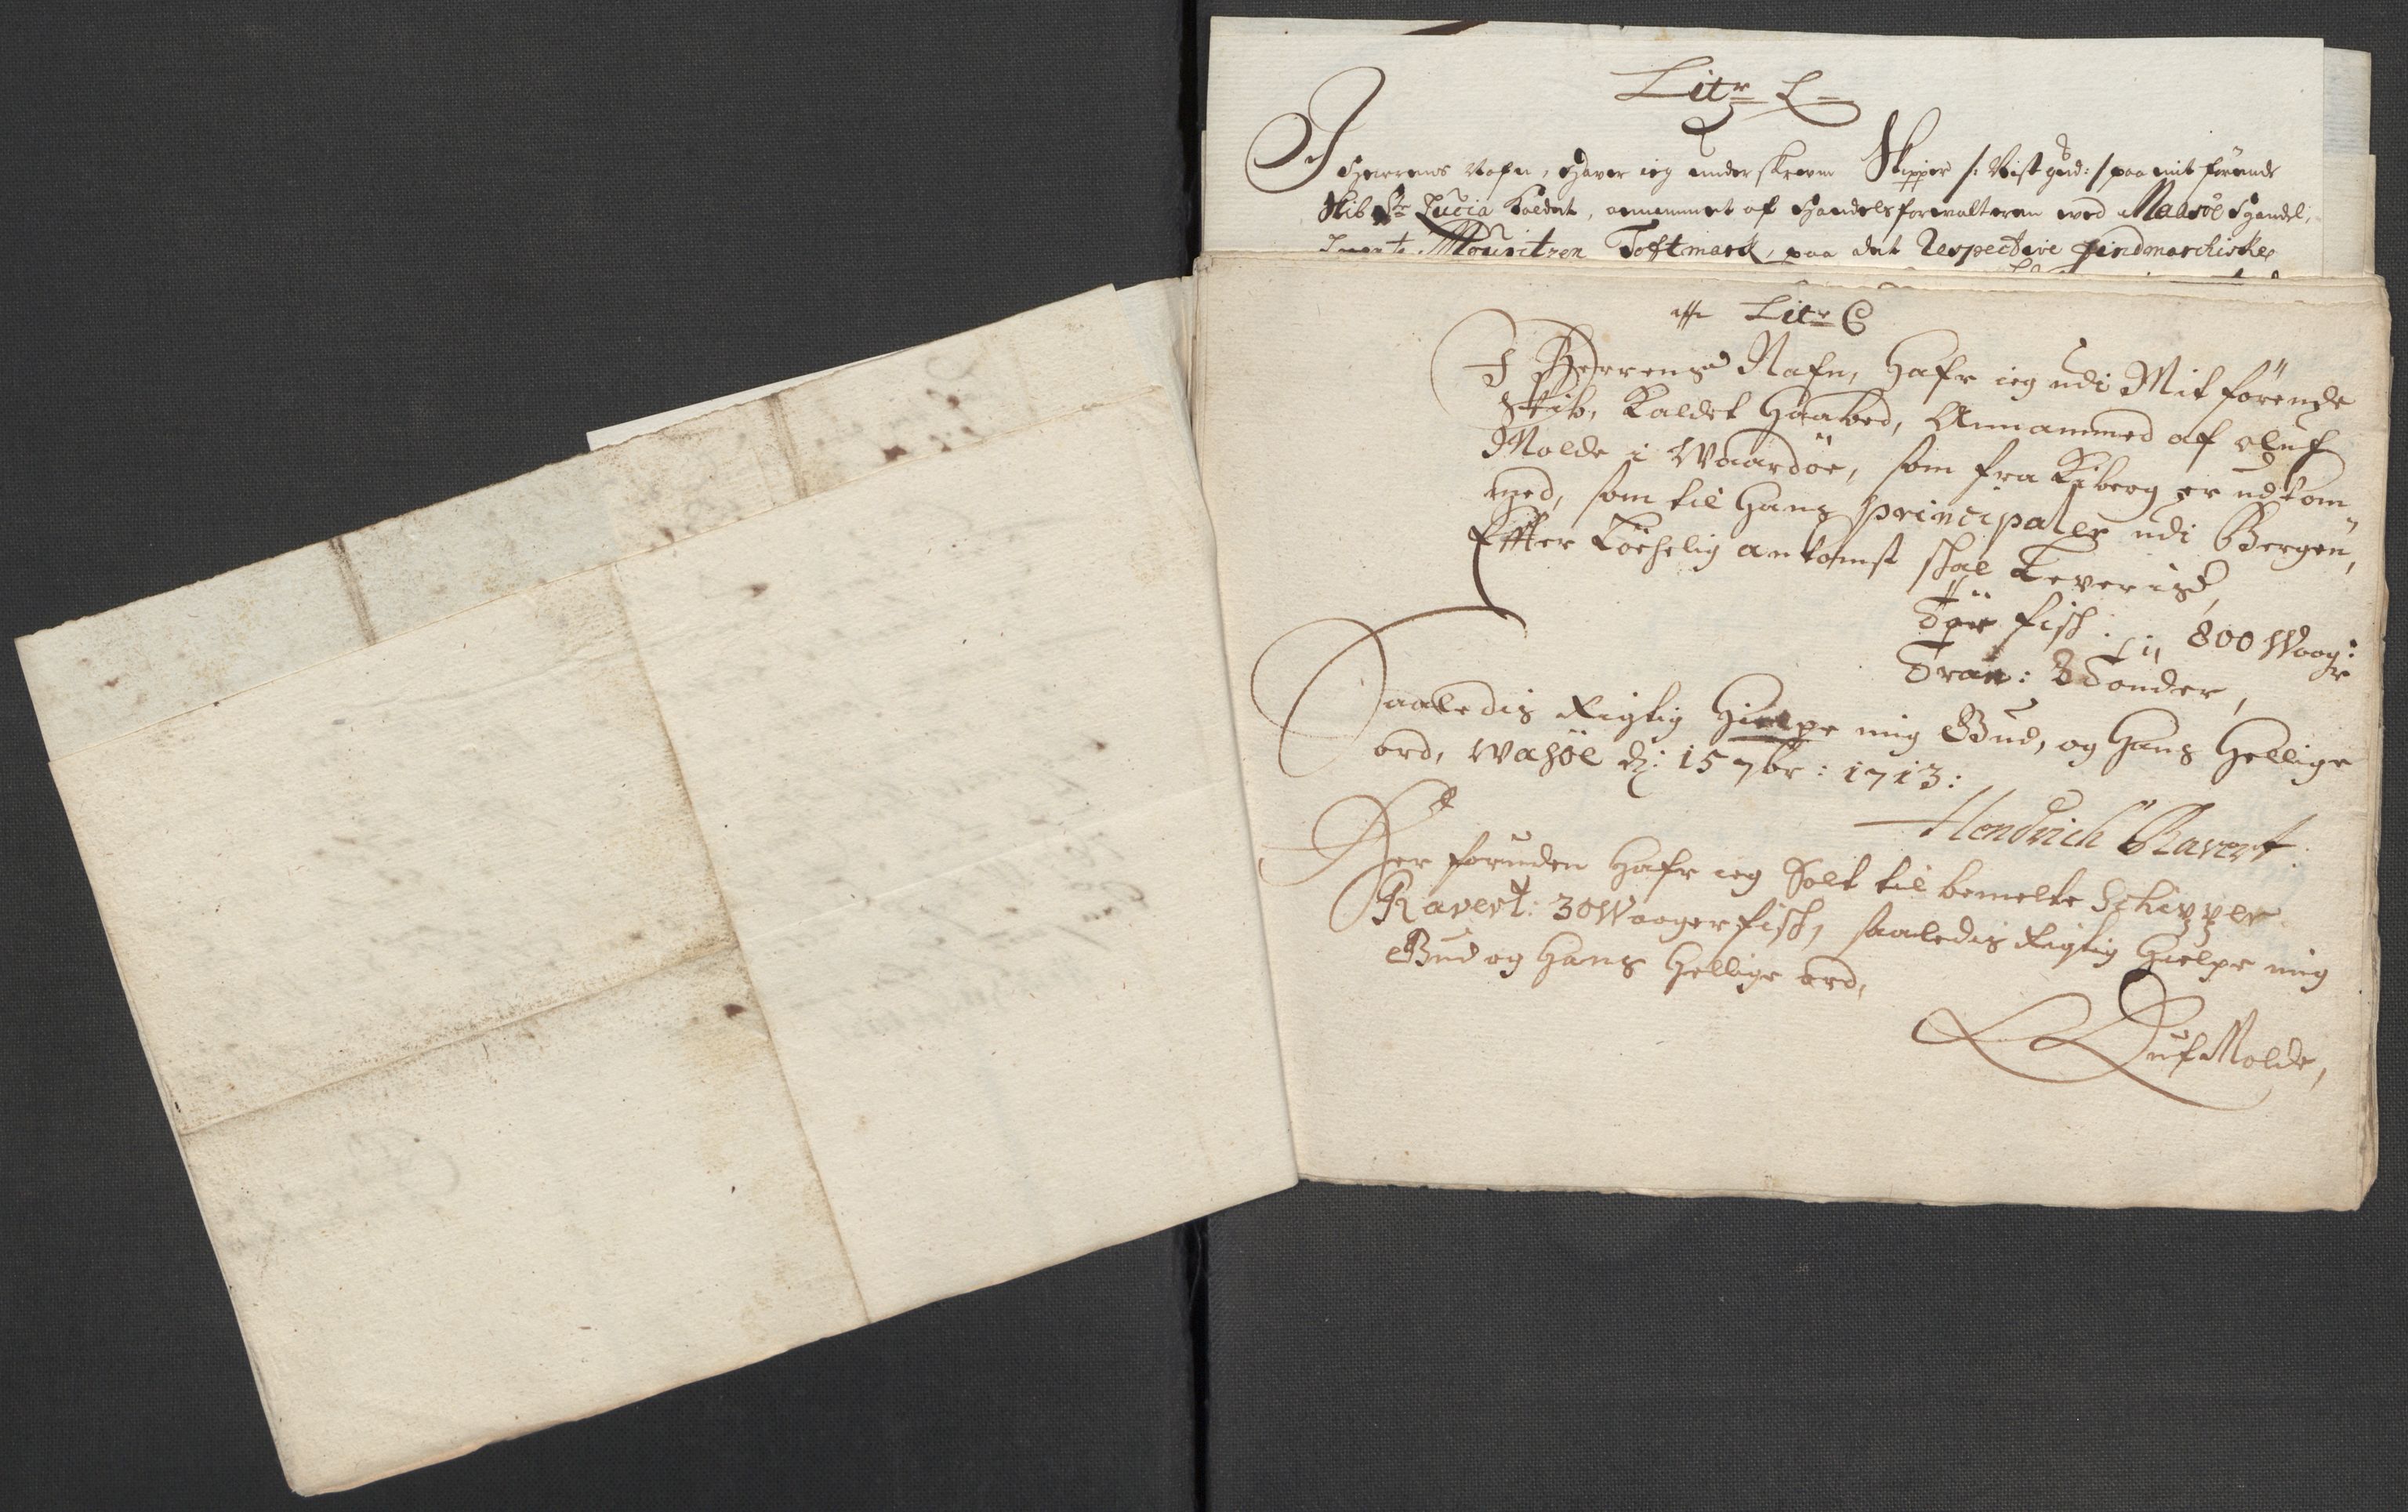 Litr L
I Herrens Nafn, Haver ieg underskrevne Skipper /: Nist gud: / paa mit førende
Skib Ste Lucia kaldet, annammet af Handelsforvalteren ved Maasøe Handel,
Mouritzen Toftmarck, paa det Respective Findmarchiske
Litr C
I Herrens Nafn, Hafr ieg udi Mit førende
Skib, Kaldet Haabed, Annammed af oluf
Molde i Waardöe, som fra Kiberg er udkom„
med, som til Hans principaler udi Bergen,
Effter Löchelig ankomst skal Leverisd,
Tör fisch: 800 Waag:r
Tran: 8 Tønder,
Saaledis Rigtig Hielpe mig Gud, og Hans Hellige
ord, Wasöe d: 15 7br: 1713:
Hendrich Ravert.
Her foruden Hafr ieg Solt til bemelte Schipper
Ravert: 30 Waager fisch, saaledis Rigtig Hielpe mig
Gud og Hans Hellige ord,
Oluf Molde,